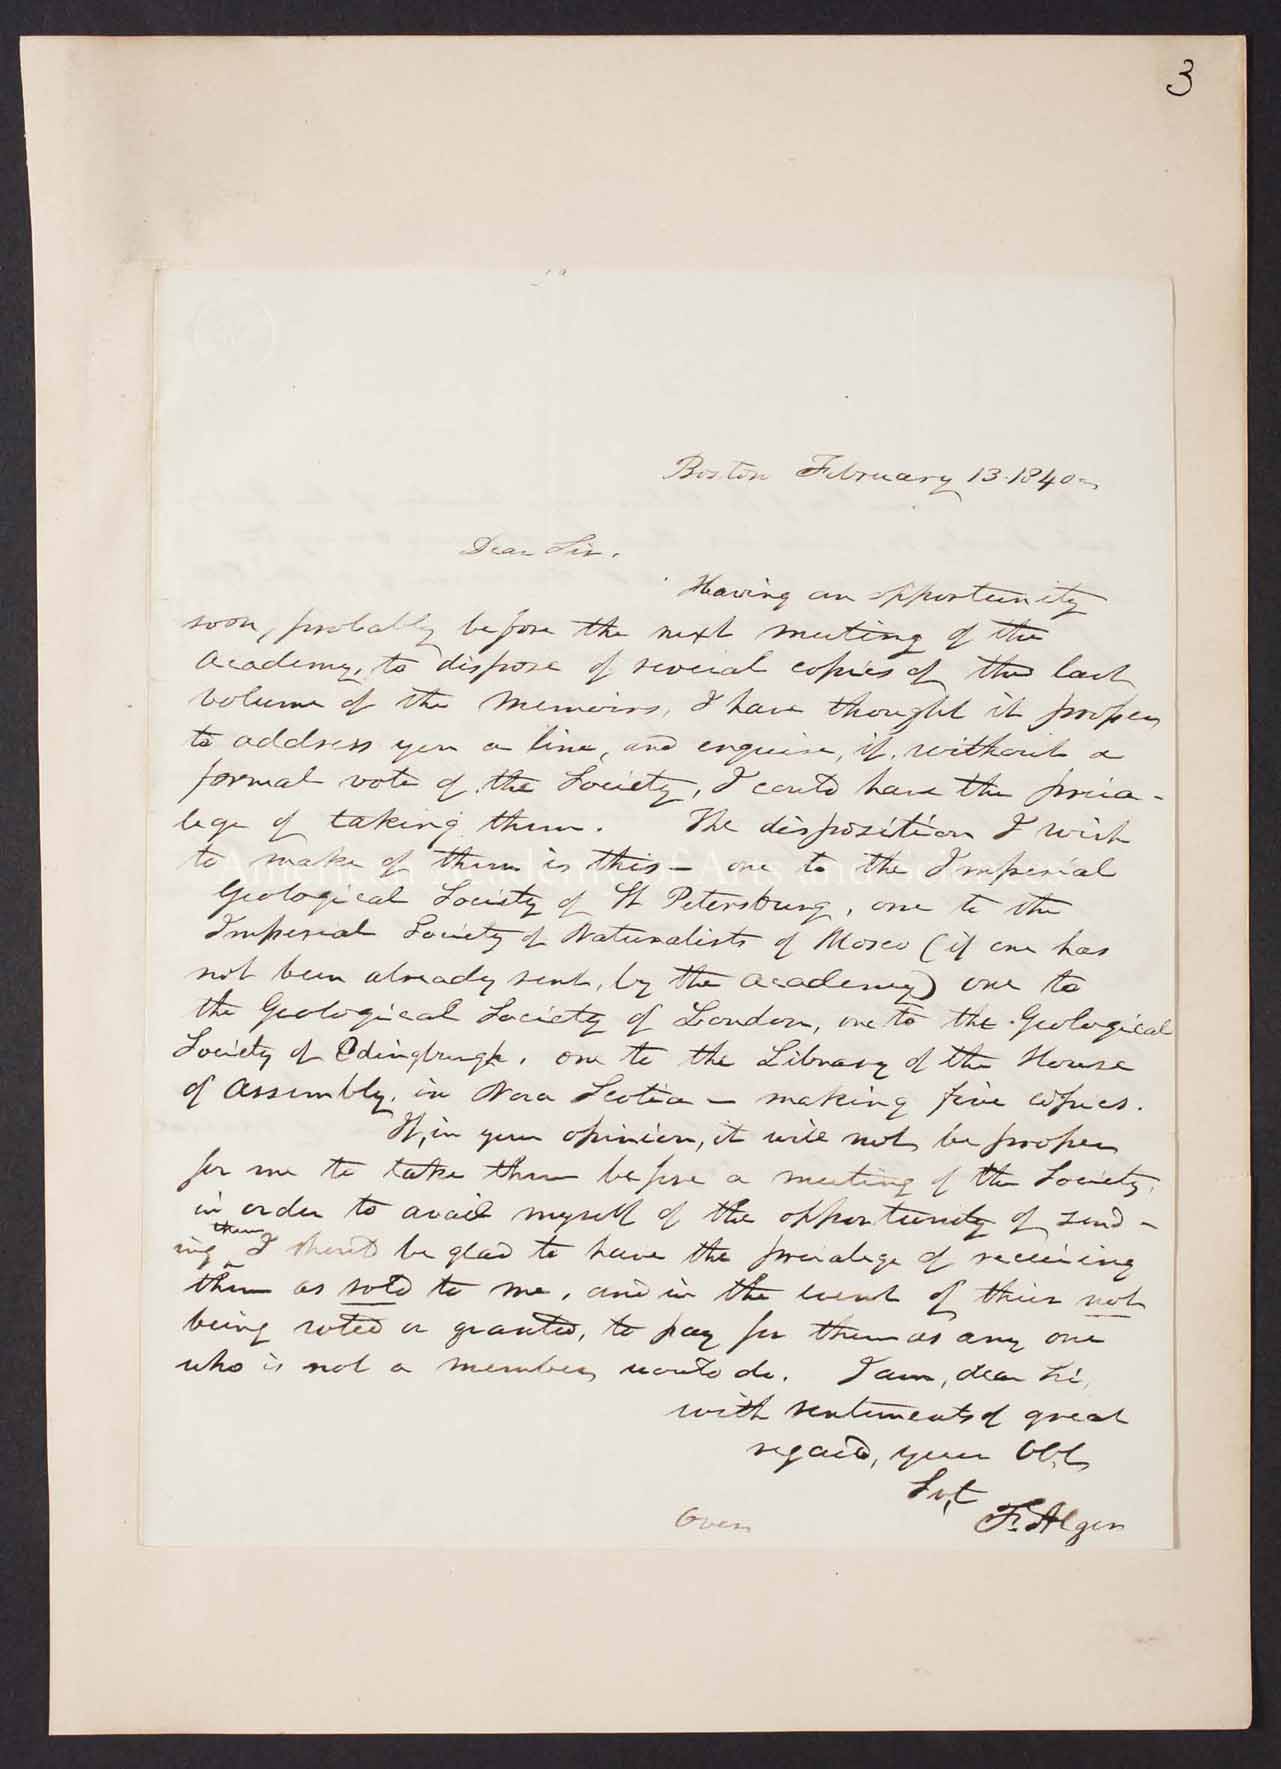 3
Boston February 13. 1840
Dear Sir.
Having an opportunity
soon, probably before the next meeting of the
Academy, to dispose of several copies of the last
volume of the Memoirs, I have thought it proper
to address you a line, and enquire, if, without a
formal vote of the Society, I could have the priva-
lege of taking them. The disposition I wish
to make of them is this — one to the Imperial
American Academy of Arts and Sciences
Geological Society of St Petersburg, one to the
Imperial Society of Naturalists of Mosco (if one has
not been already sent, by the Academy) one to
the Geological Society of London, one to the Geological
Society of Edingburgh, one to the Library of the House
of Assembly, in Nova Scotia — making five copies.
If, in your opinion, it will not be proper
for me to take them before a meeting of the Society,
in order to avail myself of the opportunity of send-
them
ing I should be glad to have the privalege of receiving
them as sold to me, and in the event of their not
being voted or granted, to pay for them as any one
who is not a member would do. I am, dear Sir,
with sentiments of great
regard, your Obt
Svt
F. Alger
Over